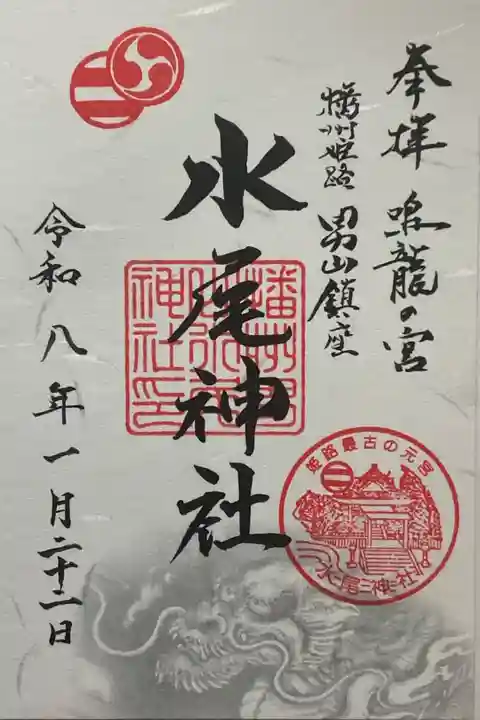 奉拝 鳴龍の宮
播州姫路 男山鎮座
水尾神社
令和八年一月二十二日
姫路最古の元宮
水尾神社